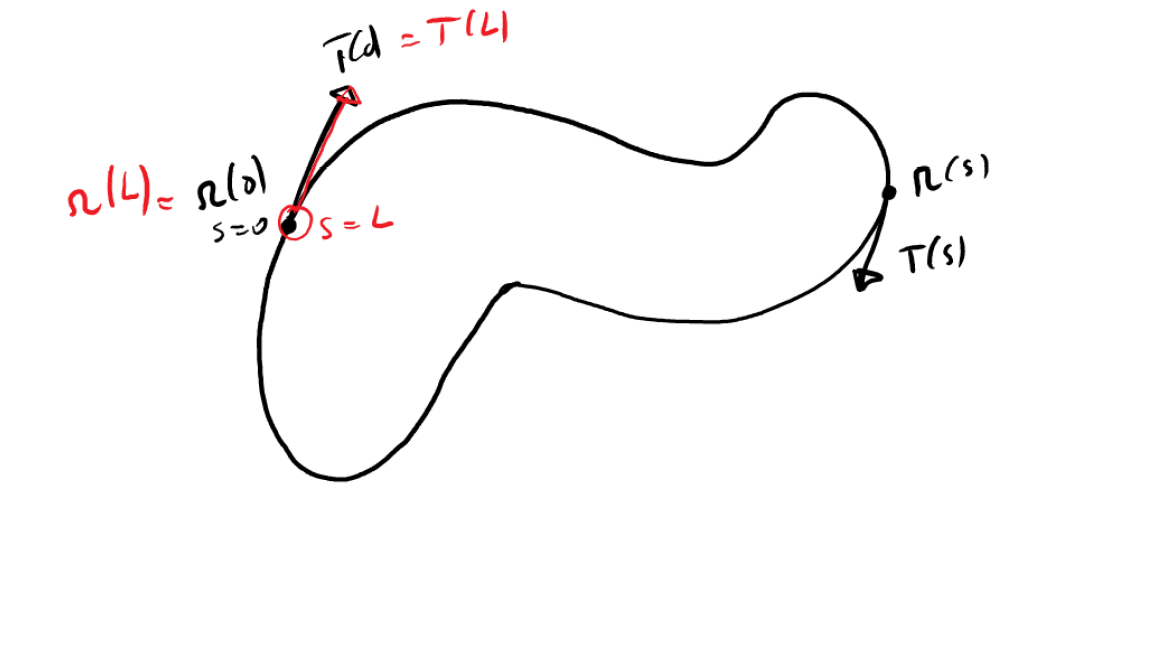 T(0) = T(L)
r(L) = r(0)
s=0 s=L
r(s)
T(s)